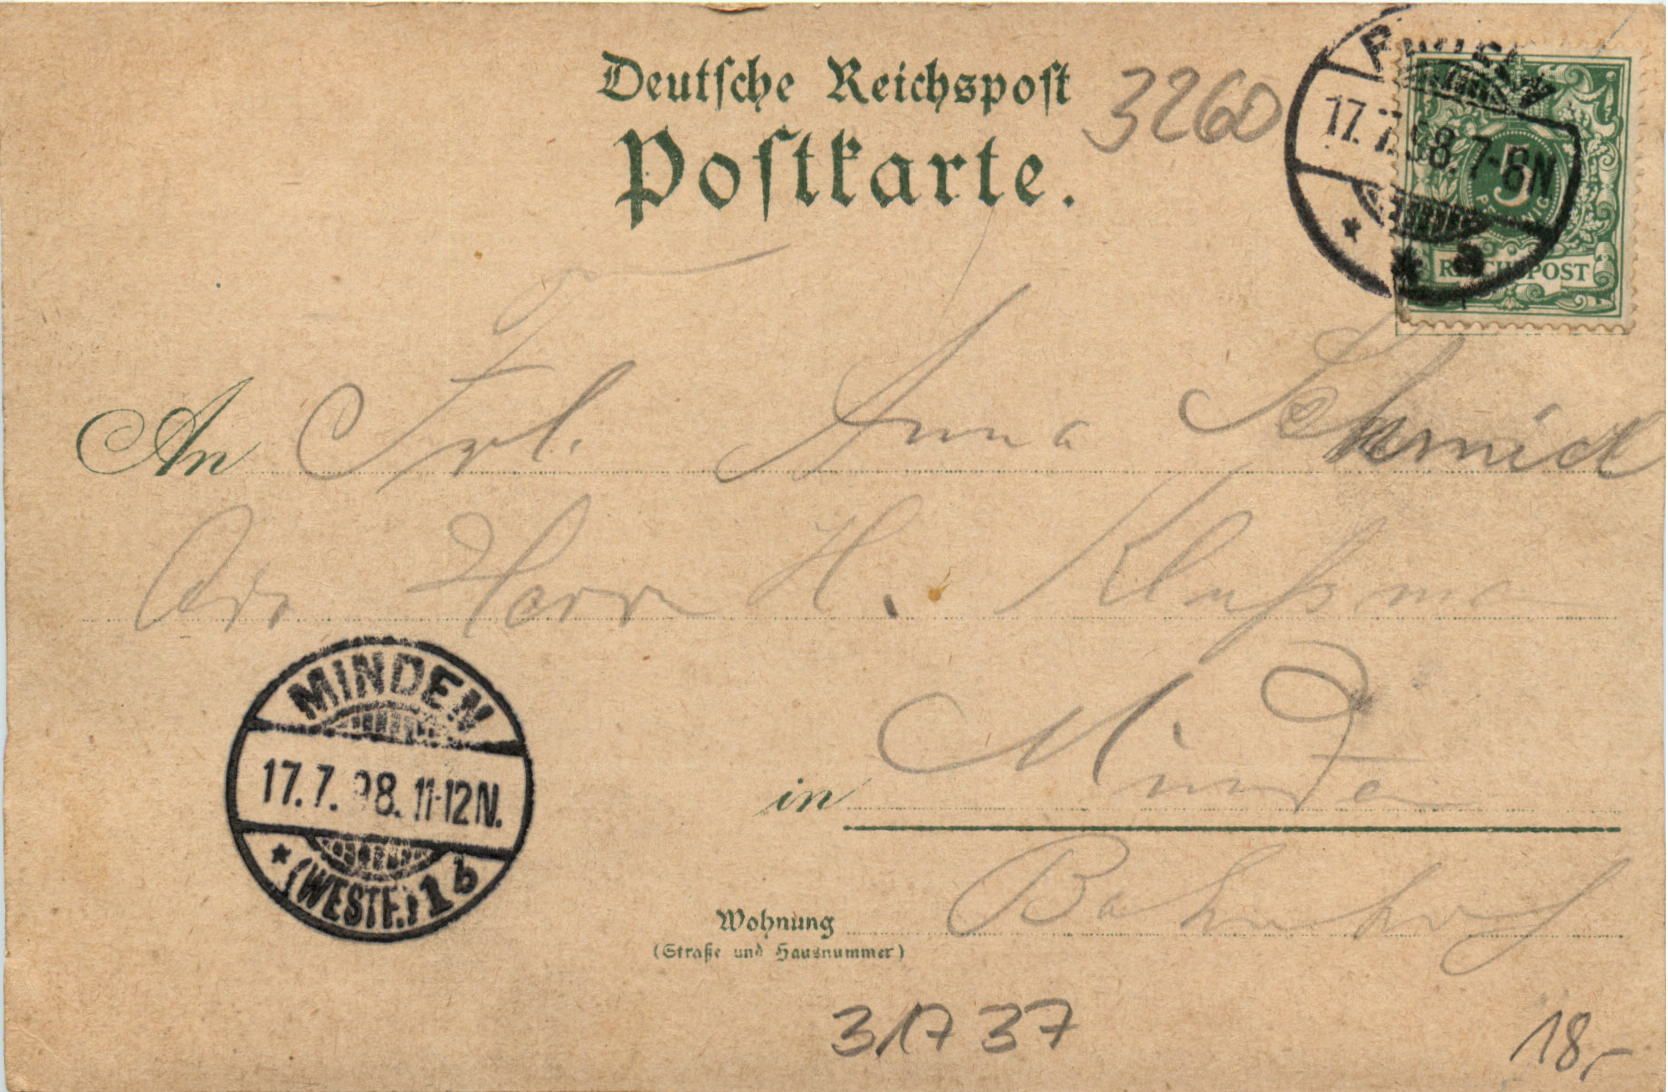 Deutsche Reichspost
Postkarte.
3260
17.7.98.7-8N
5
PFENNIG
REICHSPOST
An Frl. Anna Schmidt
Herrn H.
MINDEN
17.7.98.11-12N.
(WESTF.) 1 b
in Minden
Wohnung Bahnhof
(Straße und Hausnummer)
31737
18,-